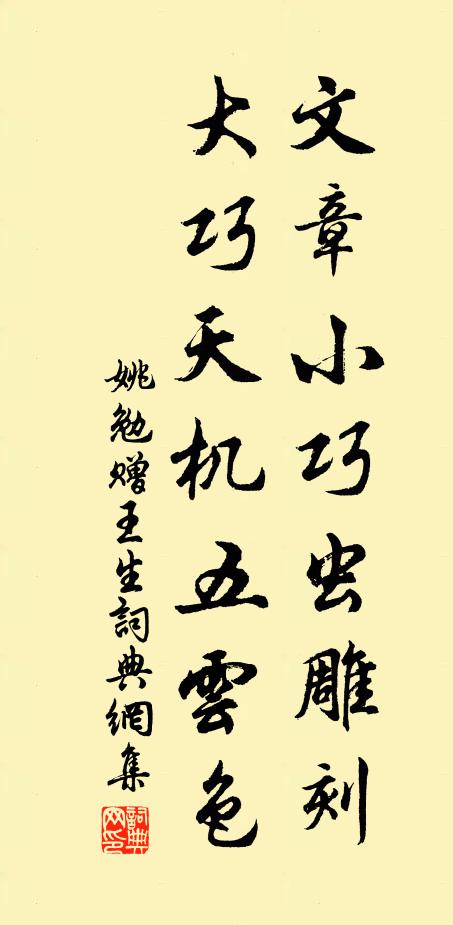 文章小巧虫雕刻
大巧天机五雲色
姚勉赠王生詞典網集
詞典网印